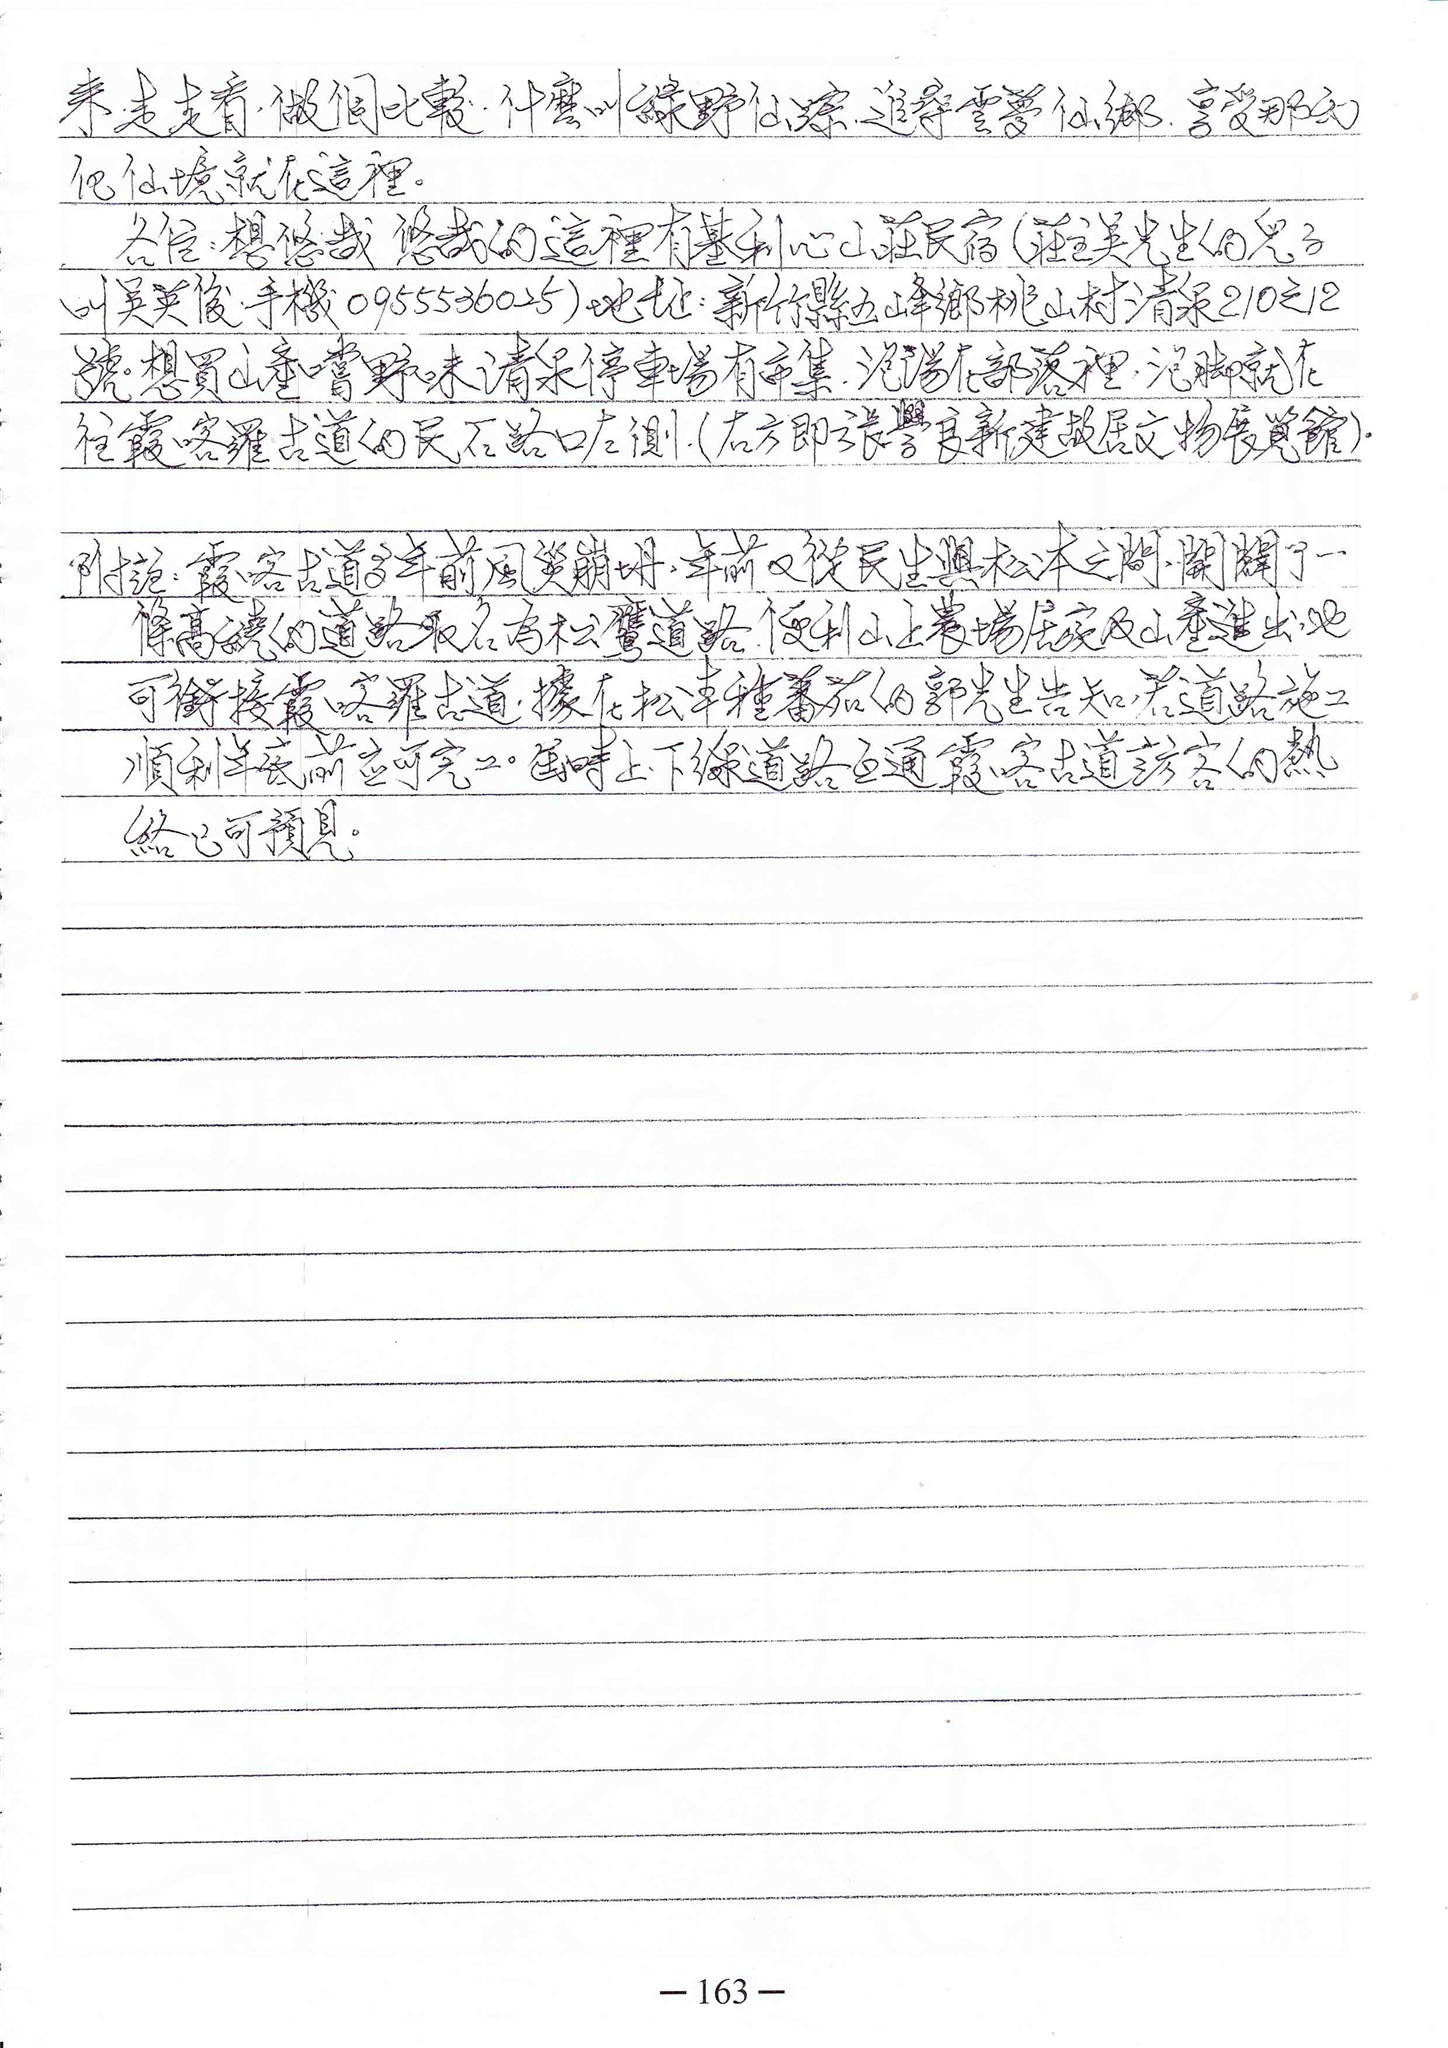 來.走走看.做個比較.什麼叫綠野仙踪.追尋雲夢仙鄉.享受那幻
化仙境就在這裡。
各位:想悠哉 悠哉的這裡有基利心山莊民宿(莊主吳先生的兒子
叫吳英俊.手機0955536025)地址:新竹縣五峰鄉桃山村清泉210之12
號。想買山產嚐野味清泉停車場有市集.泡湯在部落裡.泡腳就在
往霞喀羅古道的民石路口左側.(右方即張學良新建故居文物展覽館)。
附註:霞喀古道多年前風災崩坍.年前又從民生與松本之間.開闢了一
條高繞的道路取名為松鷹道路.便利山上農場居家及山產進出.也
可銜接霞喀羅古道.據在松本種蕃茄的郭先生告知.若道路施工
順利年底前應可完工。屆時上.下線道路互通霞喀古道訪客的熱
絡已可預見。
— 163 —